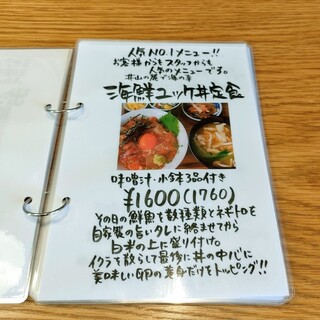 人気NO.1メニュー!!
お客様からもスタッフからも
人気のメニューです。
井山の展で海の幸
海鮮ユッケ丼定食
味噌汁・小鉢3品付き
¥1600(1760)
その日の鮮魚を数種類とネギトロを
自家製の旨いタレに絡ませてから
白米の上に盛り付け。
イクラを散らして最後に丼の中心に
美味しい卵の黄身だけをトッピング!!